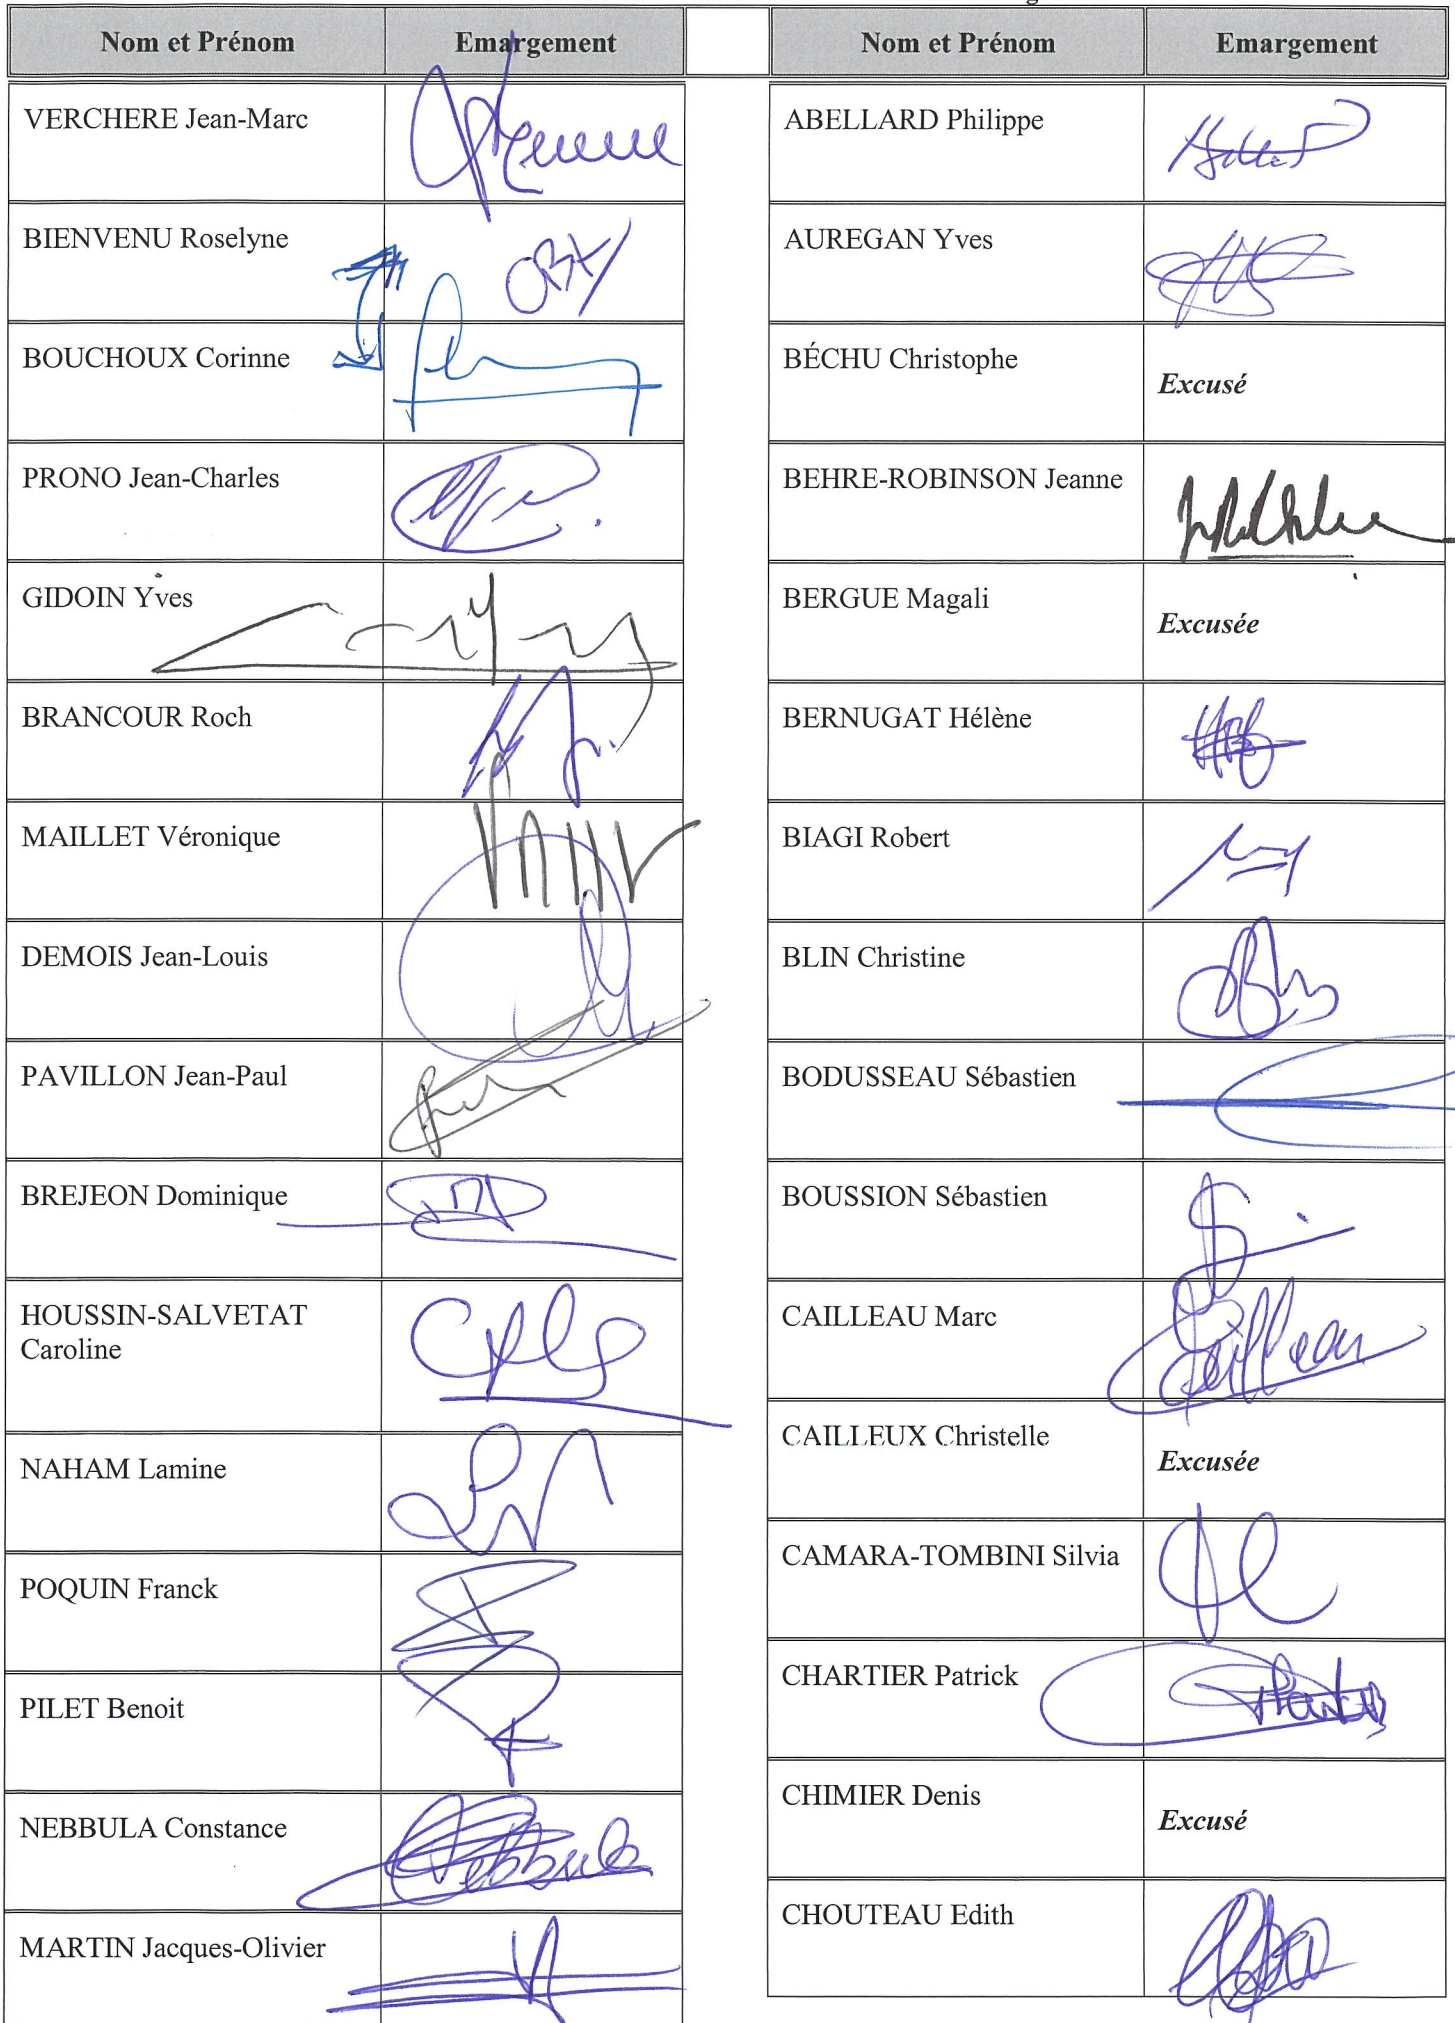 Nom et Prénom Emargement
VERCHERE Jean-Marc
BIENVENU Roselyne
BOUCHOUX Corinne
PRONO Jean-Charles
GIDOIN Yves
BRANCOUR Roch
MAILLET Véronique
DEMOIS Jean-Louis
PAVILLON Jean-Paul
BREJEON Dominique
HOUSSIN-SALVETAT
Caroline
NAHAM Lamine
POQUIN Franck
PILET Benoit
NEBBULA Constance
Nebbula
MARTIN Jacques-Olivier
Nom et Prénom Emargement
ABELLARD Philippe
AUREGAN Yves
BÉCHU Christophe
Excusé
BEHRE-ROBINSON Jeanne
BERGUE Magali
Excusée
BERNUGAT Hélène
BIAGI Robert
BLIN Christine
BODUSSEAU Sébastien
BOUSSION Sébastien
CAILLEAU Marc
Cailleau
CAILLEUX Christelle
Excusée
CAMARA-TOMBINI Silvia
CHARTIER Patrick
CHIMIER Denis
Excusé
CHOUTEAU Edith